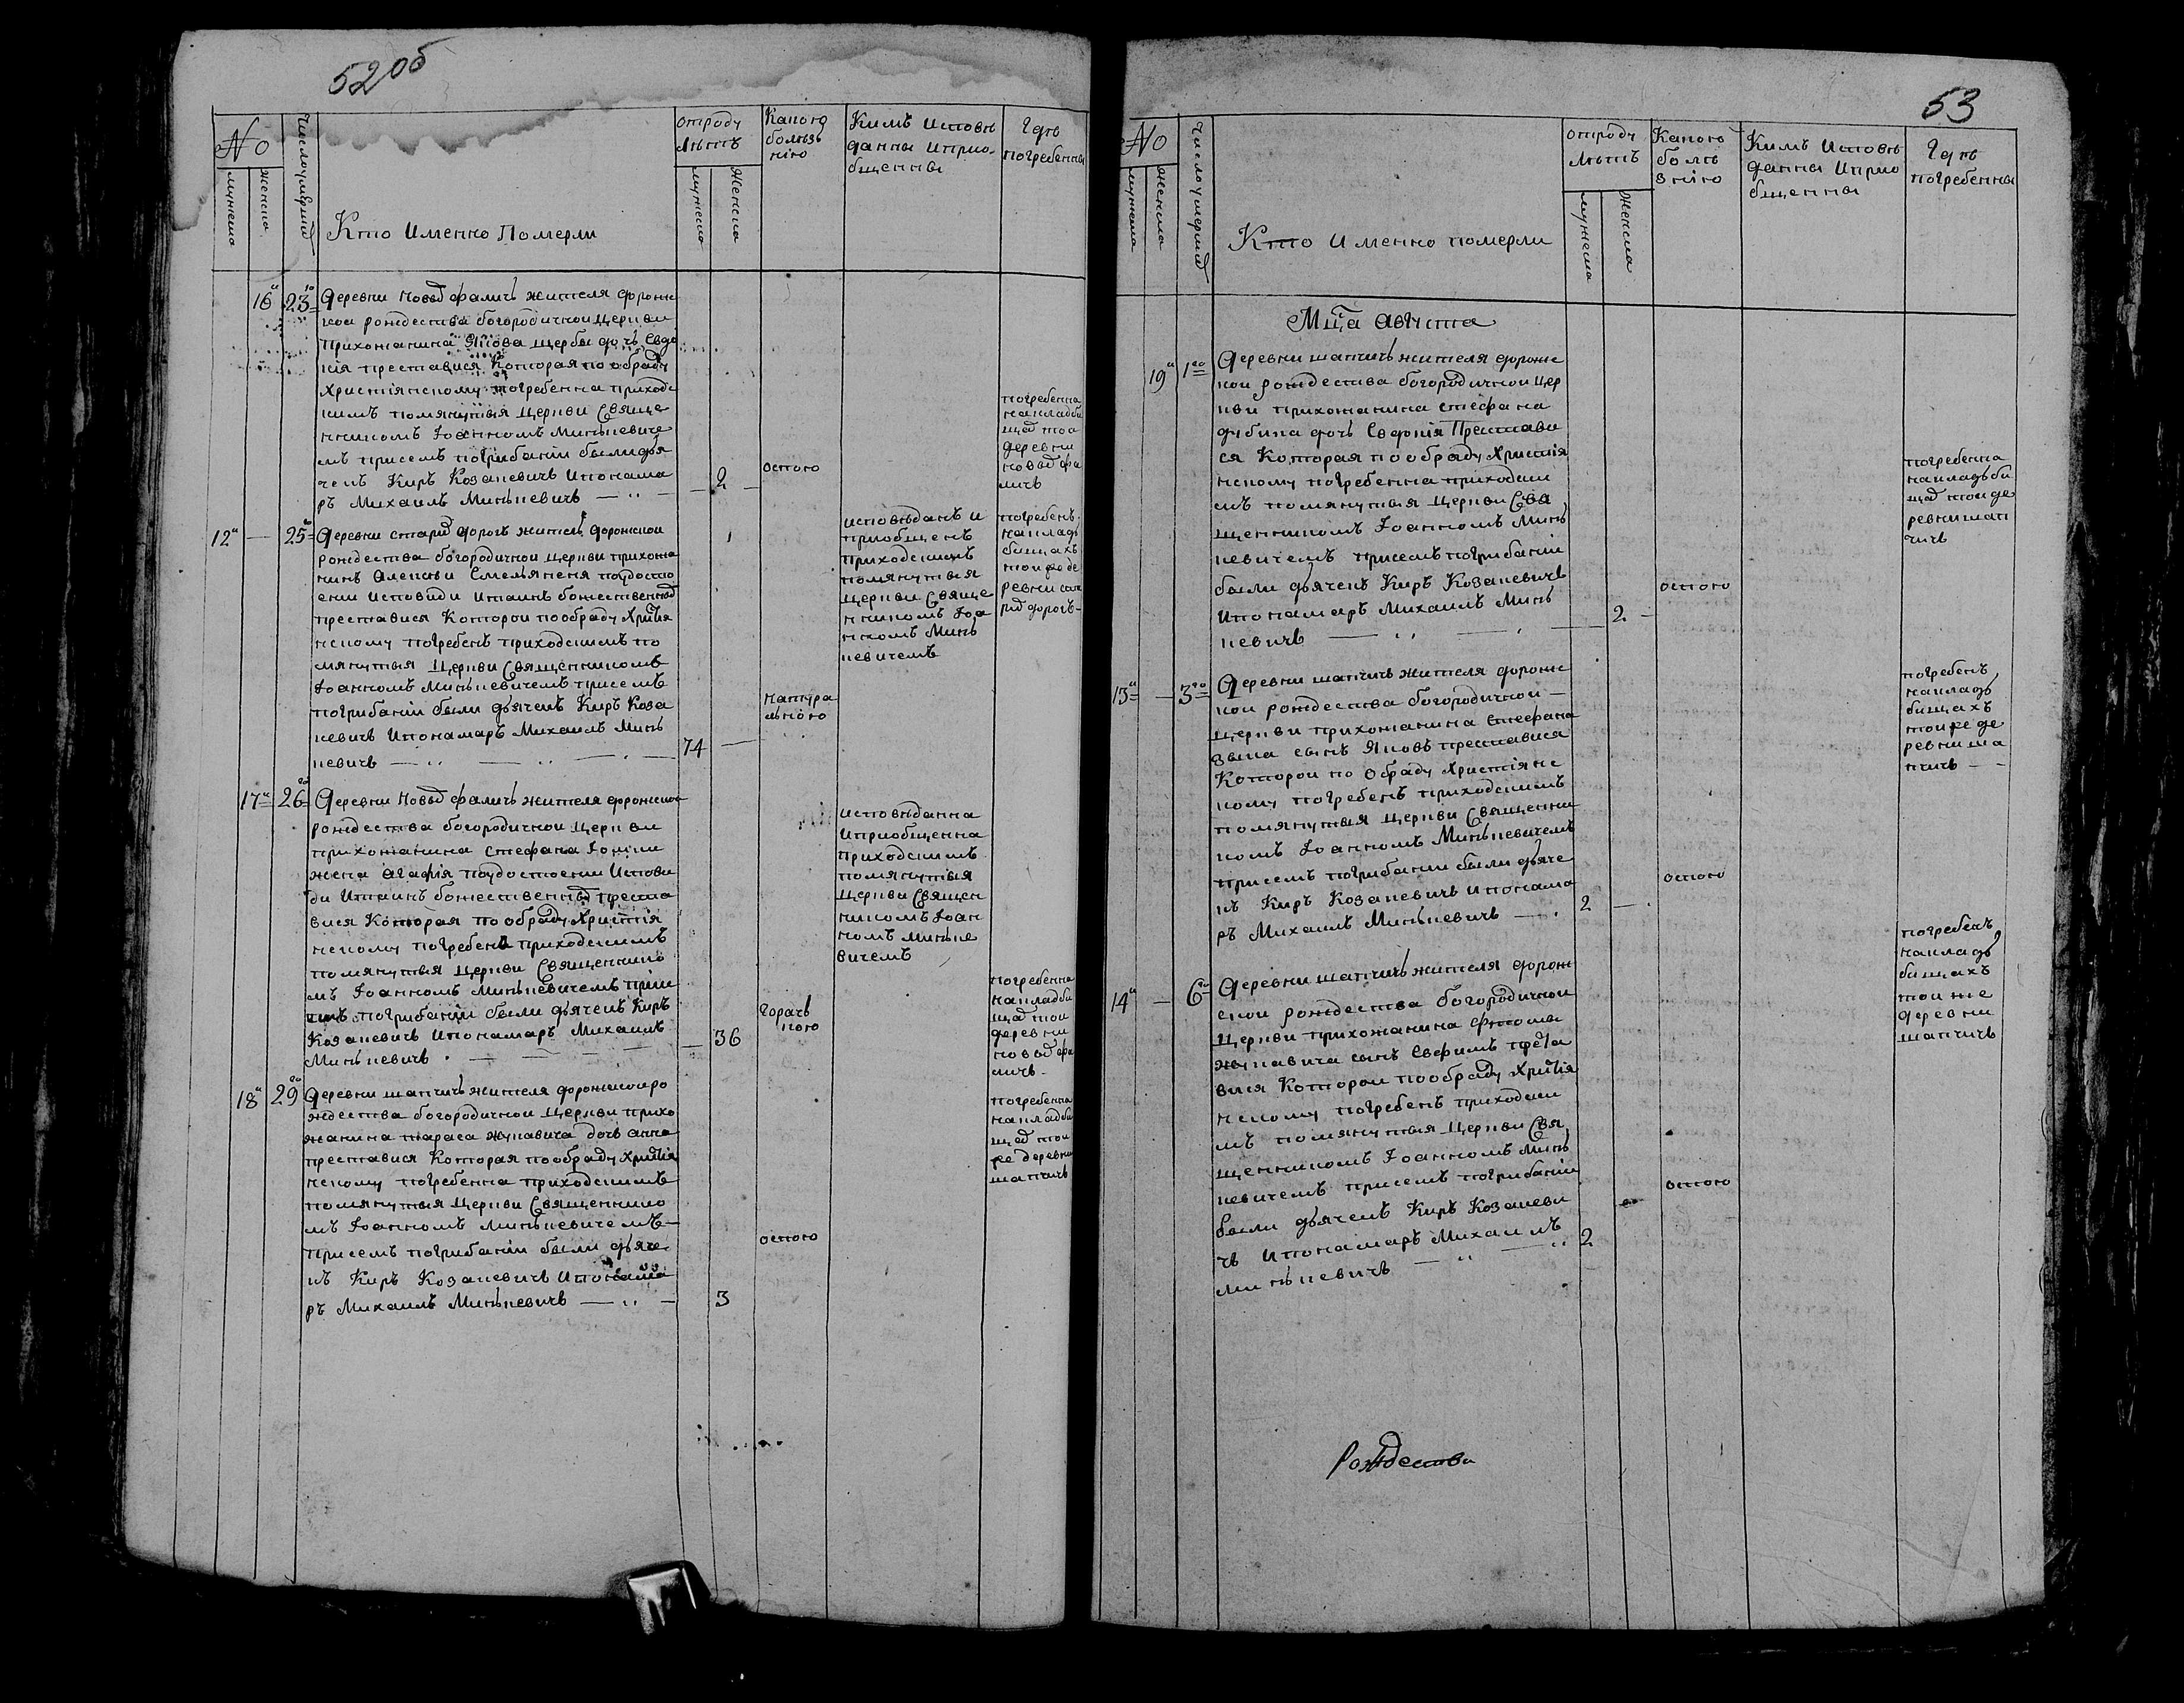 52об
No
мужеска
женска
Число умершид
Кто Именно Померли
отроду
лѣтъ
мужеска
Женска
Какою
болѣз
нію
Кимъ Исповѣ
данны Иприо-
бщенны
Гдѣ
погребенны
16а 23го
Деревни Новыд фаличъ жителя дорожс
кои рождества богородичнои Церкви
прихожанина Якова щербы дочь Евдо
кія преставися Которая по обряду
Христіянскому погребенна приходс
кимъ помянутыя Церкви Свяще
нникомъ Іоанномъ Минькевиче
мъ присемъ погрибаніи были дья
чекъ Киръ Козакевичъ Ипонама
ръ Михаилъ Минькевичъ
2
оспою
погребенна
накладби
щад тоя
деревни
новыд фа
личъ
12а 25го
Деревни старид дорогъ житель дорожскои
рождества богородичнои Церкви прихожа
нинъ Алексѣи Емельяненя поудосто
ении Исповѣди Итаинъ божественныд
преставися Которои пообряду Хрістія
нскому погребенъ приходскимъ по
мянутыя Церкви Священникомъ
Іоанномъ Минькевичемъ присемъ
погрибаніи были дьячекъ Киръ Коза
кевичъ Ипонамаръ Михаилъ Минь
кевичъ
74
натура
льною
исповѣданъ и
приобщенъ
приходскимъ
помянутыя
Церкви Свяще
нникомъ Іоа
нномъ Минь
кевичемъ
погребенъ
накладь
бищахъ
тои же де
ревни ста
рид дорогъ-
17а 26го
Деревни Новыд фаличъ жителя дорожскои
рождества богородичнои Церкви
прихожанина Стефана
жена Агафія поудостоении Испови
ди Итаинъ божественныд преста
вися Которая по обряду Христія
нскому погребена приходскимъ
помянутыя Церкви Священнико
мъ Іоанномъ Минькевичемъ при
семъ погрибаніи были дьячекъ Киръ
Козакевичъ Ипонамаръ Михаилъ
Минькевичъ
36
горячь
кою
исповѣданна
Иприобщенна
приходскимъ
помянутыя
Церкви Священ
никомъ Іоан
номъ Миньке
вичемъ
погребенна
накладби
щад тои
деревни
новыд фа
личъ
18а 29го
Деревни шапчичъ жителя дорожскои ро
ждества богородичнои Церкви прихо
жанина тараса жукавича дочь анна
преставися Которая пообряду Хрістія
нскому погребенна приходскимъ
помянутыя Церкви Священнико
мъ Іоанномъ Минькевичемъ-
присемъ погрибаніи были дьяче
къ Киръ Козакевичъ Ипонама
ръ Михаилъ Минькевичъ
3
оспою
погребенна
накладби
щад тои
же деревни
шапчичъ
53
No
мужеска
женска
Число умершид
Кто Именно померли
отроду
лѣтъ
мужеска
женска
Какою
болѣ
знію
Кимъ Исповѣ
данны Иприо
бщенны
Гдѣ
погребенны
Мца Августа
19а 1го
Деревни шапчичъ жителя дорожс
кои рождества богородичнои Цер
кви прихожанина стефана
дубика дочь Евфокія Престави
ся Которая пообряду Христія
нскому погребенна приходски
мъ помянутыя Церкви Свя
щенникомъ Іоанномъ Минь
кевичемъ присемъ погрибаніи
были дьячекъ Киръ Козакевичъ
Ипонамаръ Михаилъ Минь
кевичъ
2
оспою
погребенна
накладьби
щад тои де
ревни шап
чичъ
13а 3го
Деревни шапчичъ жителя дорожс
кои рождества богородичнои
Церкви прихожанина Стефана
зыка сынъ Яковъ преставися
Которои по обряду Христіянс
кому погребенъ приходскимъ
помянутыя Церкви Священни
комъ Іоанномъ Минькевичемъ
присемъ погрибаніи были дьяче
къ Киръ Козакевичъ Ипонама
ръ Михаилъ Минькевичъ
2
оспою
погребенъ
накладь
бищахъ
тои же де
ревни ша
пчичъ
14а 6го
Деревни шапчичъ жителя дорож
скои рождества богородичнои
Церкви прихожанина Фтомы
жукавича сынъ Евфимъ преста
вися Которои пообряду Хрістія
нскому погребенъ приходски
мъ помянутыя Церкви Свя
щенникомъ Іоанномъ Минь
кевичемъ присемъ погрибаніи
были дьячекъ Киръ Козакеви
чъ Ипонамаръ Михаилъ
Минькевичъ
2
оспою
погребенъ
накладь
бищахъ
тои же
деревни
шапчичъ
Рождества